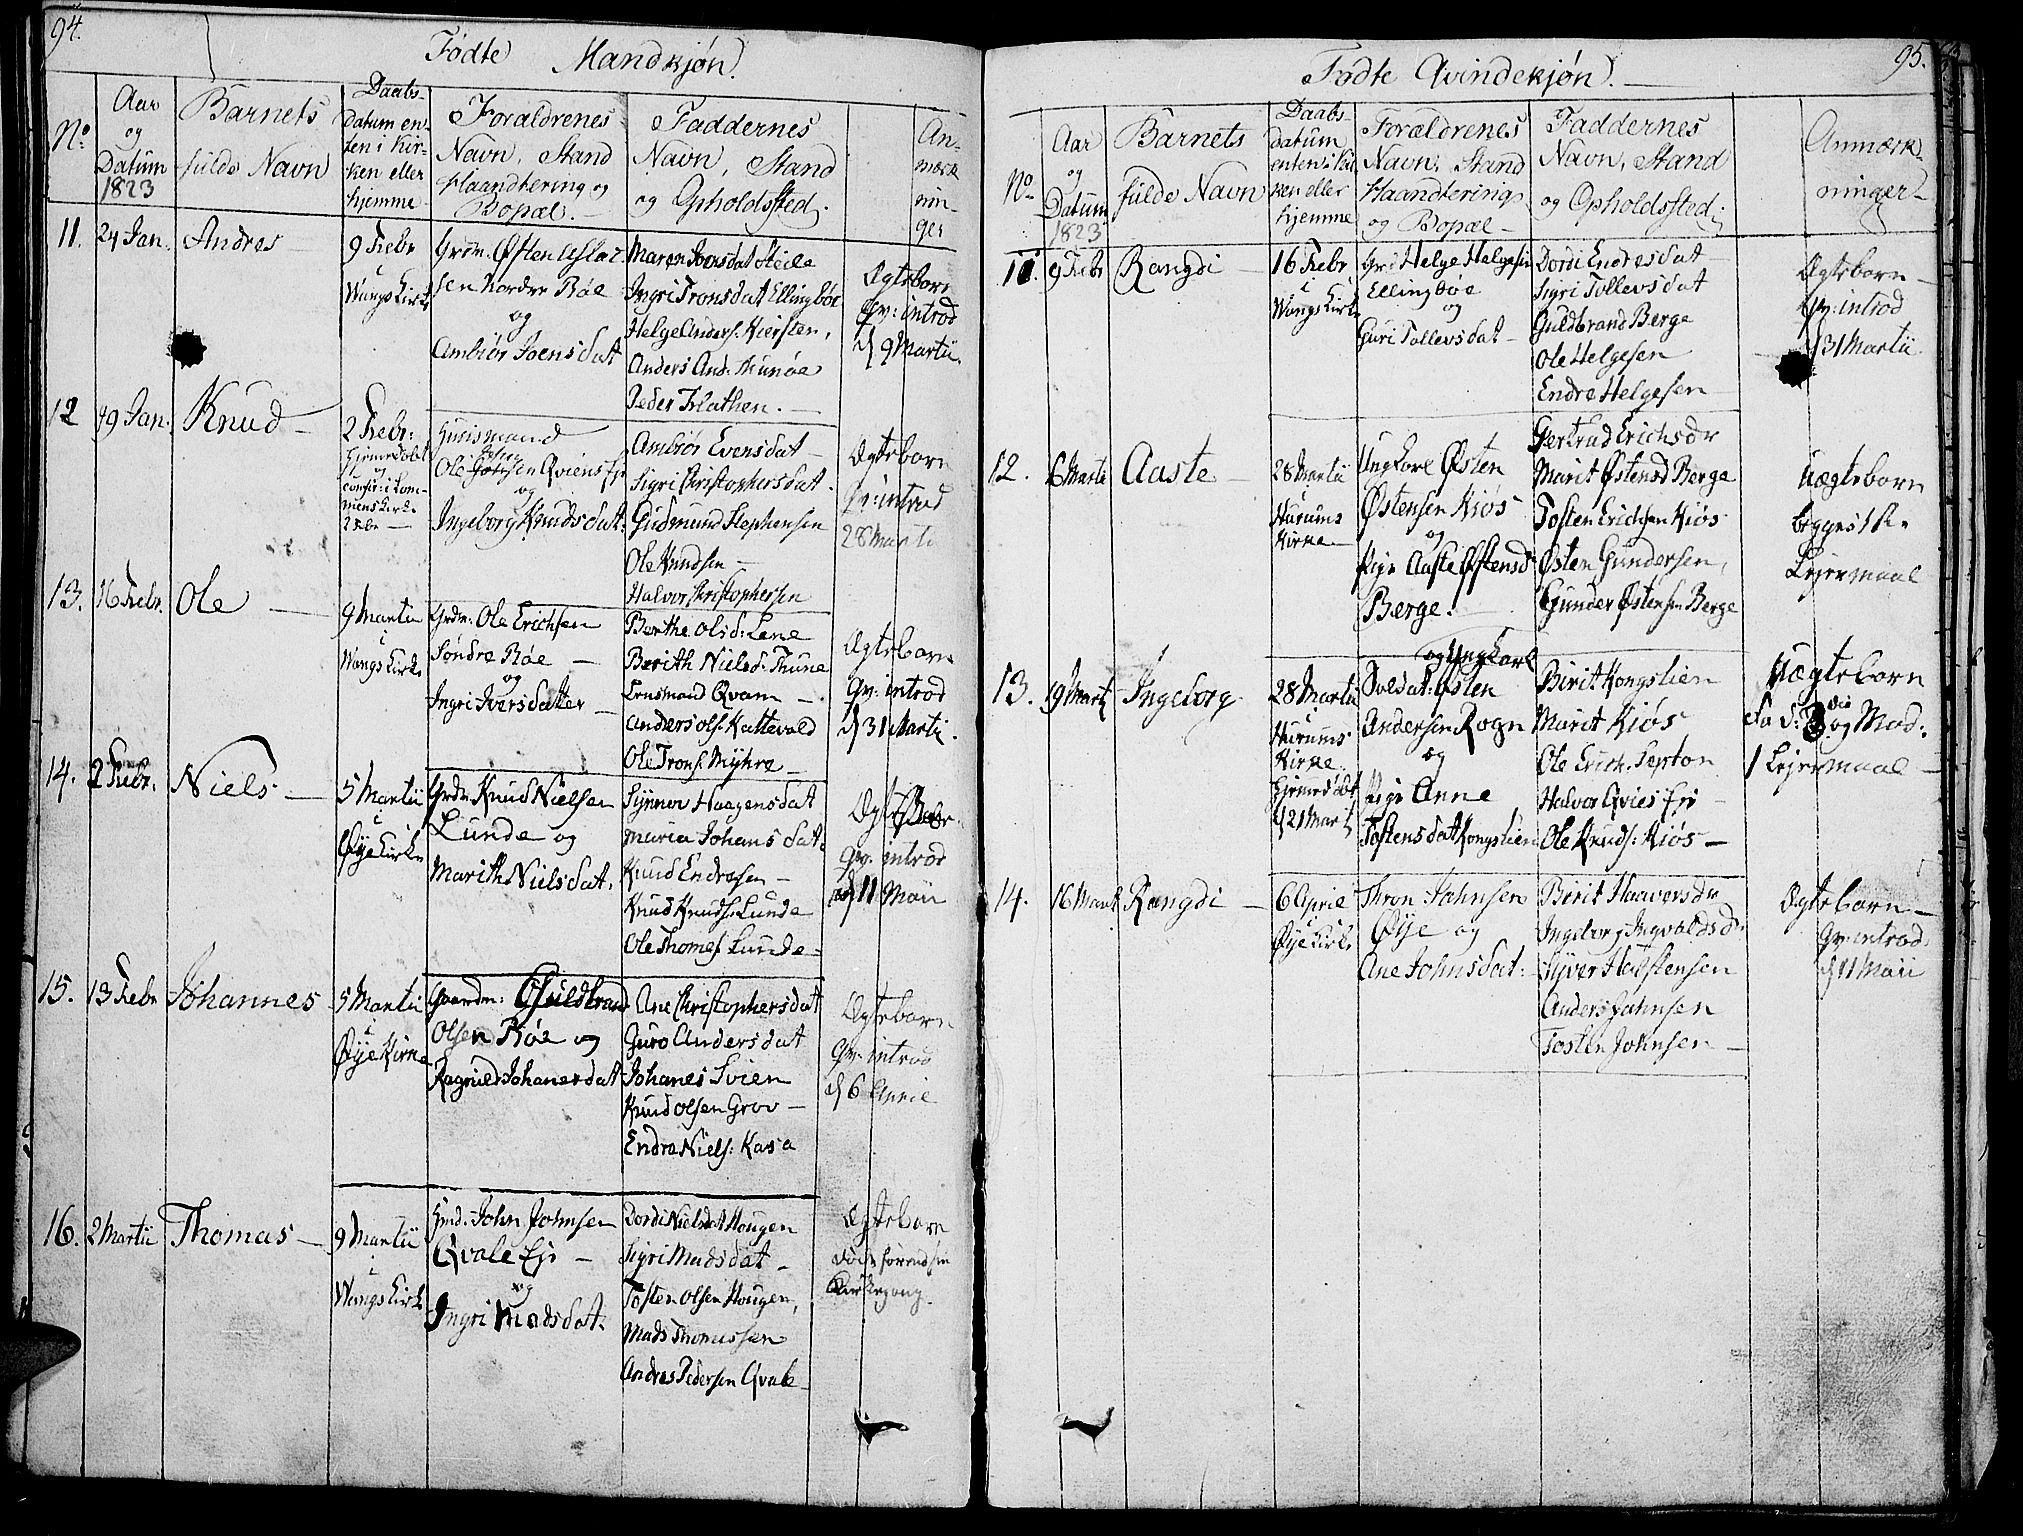 94.
Fødte Mandkjøn.
No.
Aar
og
Datum
1823
Barnets
fulde Navn
Daabs-
datum en-
ten i Kir-
ken eller
hjemme
Forældrenes
Navn, Stand
Haandtering og
Bopæl.
Faddernes
Navn, Stand
og Opholdssted.
An-
mærk
nin-
ger
11.
24 Jan.
Andres
9 Febr
i
Wangs Kirke
Grdm. Østen
sen Nordre Røe
og
Ambiør Joensdat
Maren Joensdat
Ingri Tronsdat Ellingbøe
Helge Anders. Kiersten,
Anders And. Thunøe
Peder Flathen.
Ægteborn
Qv: introd
d 9 Martii.
12
19 Jan.
Knud
2 Febr:
hjemedøbt
og
confir: i
mens Kirke
Husmand
Ole Johnsen Qviens Ejr
og
Ingeborg Knudsdat:
Ambiør Evensdat
Sigri Christophersdat.
Gudmund Stephensen
Ole Knudsen
Halvor Christophersen
Ægteborn
Qv: introd
28 Marti
13.
16 Febr.
Ole
9 Martii
i
Wangs Kirke
Grdm: Ole Erichsen
Søndre Røe
og
Ingri Iversdatter
Berthe Olsd: Lene
Berith Nielsd: Thune
Lensmand Qvam
Anders Ols. Kattevold
Ole Trons. Myhre
Ægteborn
Qv: introd
d 31 Marti.
14.
2 Febr.
Niels
5 Martii
i
Øye Kirke
Grdm Knud Nielsen
Lunde og
Marith Nielsdat.
Synnev Haagensdat
Maria Johansdat:
Knud Endresen
Knud Knuds. Lunde
Ole Thomes. Lunde
Ægteborn
Qv: introd
d 11 Maii
15.
13 Febr
Johannes
5 Martii
i
Øye Kirke
Gaardm: Guldbrand
Olsen Røe og
Ragnild Johanesdat
Ane Christophersdat
Guro Andersdat
Johanes Svien
Knud Olsen Grov
Endre Niels: Kasa
Ægteborn
Qv: introd
d 6 April
16.
2 Martii
Thomas
9 Martii
i
Wangs Kirke
Hmd. John Johnsen
Qvale Ejr
og
Ingri Madsdat:
Dordi Nielsdat Hougen
Sigri Madsdat
Tosten Olsen Hougen,
Mads Thomessen
Andres Pedersen Qvale
Ægteborn
Døde førend sin
Kirkegang.
95.
Fødte Qvindekjøn.
No.
Aar
og
Datum
1823
Barnets
fulde Navn
Daabs-
datum
enten i Kir
ken eller
hjemme
Forældrenes
Navn, Stand
Haandtering
og Bopæl
Faddernes
Navn, Stand
og Opholdssted
Anmærk-
ninger
11.
9 Febr
Rangdi
16 Febr
i
Wangs Kirke
Grd Helge Helgesen
Ellingbøe
og
Guri Tollevsdat
Dordi Endresdat
Sigri Tollevsdat
Guldbrand Berge
Ole Helgesen
Endre Helgesen
Ægteborn
Qv: introd
d 31 Martii
12.
6 Marti
Aaste
28 Martii
i
Hurums
Kirke
Ungkarl Østen
Østensen Kiøs
og
Pige Aaste Østensd
Berge.
Gertrud Erichsdr
Marit Østensd Berge
Tosten Erichsen Kiøs
Østen Gundersen,
Gunder Østensen Berge
Uægteborn
begges 1ste
Lejermaal
13.
19 Marti
Ingeborg
28 Martii
i
Hurums
Kirke
hjemedøbt
d 21 Marti
og Ungkarl
Soldat: Østen
Andersen Rogn
og
Pige Anne
Tostensdat Kongslien
Birit Kongslien
Marit Kiøs
Ole Erich.
Halvor Qvies Ejr
Ole Knuds: Kiøs
Uægteborn
Fa d: 3die og Mod:
1 Lejermaal
14.
16 Marti
Rangdi
6 April
i
Øye Kirke
Thron Johnsen
Øye og
Ane Johnsdat:
Birit Haaversdr
Ingeborg Ingvaldsdr
Syver Halstensen
Anders Johnsen
Tosten Johnsen
Ægteborn
Qv: introd.
d 11 Maii